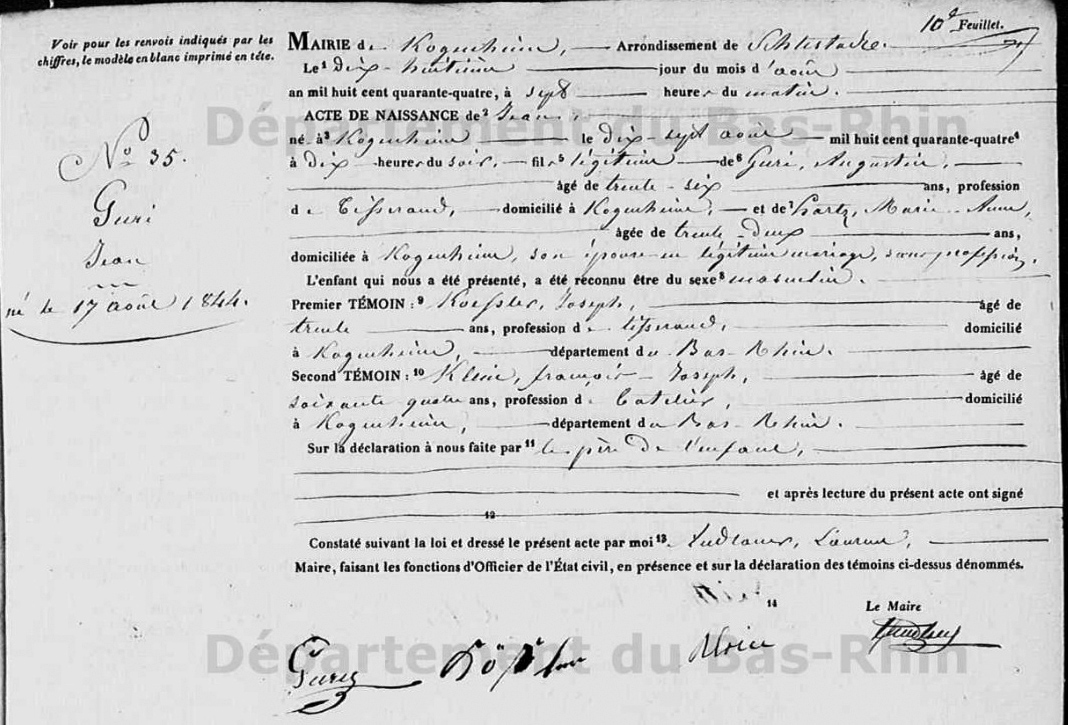 10e Feuillet.
Voir pour les renvois indiqués par les
chiffres, le modèle en blanc imprimé en tête.
MAIRIE de Kogenheim, Arrondissement de Schlestadt.
Le1 dix-huitième jour du mois d'août
an mil huit cent quarante-quatre, à sept heures du matin.
ACTE DE NAISSANCE de2 Jean,
né à3 Kogenheim le dix-sept août mil huit cent quarante-quatre4
à dix heures du soir, fils5 légitime de6 Guri, Augustin,
âgé de trente-six ans, profession
de Tisserand, domicilié à Kogenheim, et de7 Hartz, Marie-Anne,
âgée de trente-deux ans,
domiciliée à Kogenheim, son épouse en légitime mariage, sans profession.
L'enfant qui nous a été présenté, a été reconnu être du sexe8 masculin.
Premier TÉMOIN :9 Koessler, Joseph, âgé de
trente ans, profession de tisserand, domicilié
à Kogenheim, département du Bas-Rhin.
Second TÉMOIN :10 Klein, françois-Joseph, âgé de
soixante quatre ans, profession de domicilié
à Kogenheim, département du Bas-Rhin.
Sur la déclaration à nous faite par11 le père de l'enfant,
et après lecture du présent acte ont signé
12
Constaté suivant la loi et dressé le présent acte par moi13 Laurent,
Maire, faisant les fonctions d'Officier de l'État civil, en présence et sur la déclaration des témoins ci-dessus dénommés.
14
Le Maire
No 35.
Guri
Jean
né le 17 août 1844.
Département du Bas-Rhin
Département du Bas-Rhin